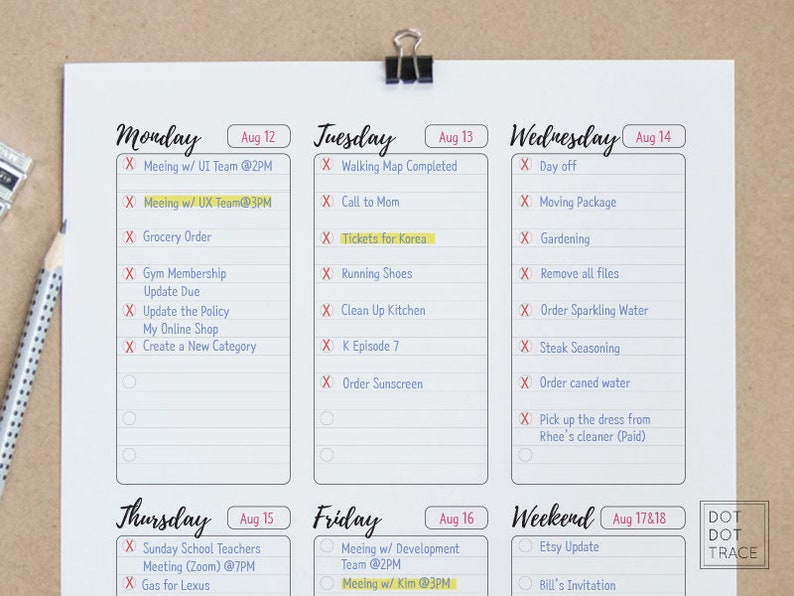 Monday Aug 12
X Meeing w/ UI Team @2PM
X Meeing w/ UX Team@3PM
X Grocery Order
X Gym Membership
Update Due
X Update the Policy
My Online Shop
X Create a New Category
Tuesday Aug 13
X Walking Map Completed
X Call to Mom
X Tickets for Korea
X Running Shoes
X Clean Up Kitchen
X K Episode 7
X Order Sunscreen
Wednesday Aug 14
X Day off
X Moving Package
X Gardening
X Remove all files
X Order Sparkling Water
X Steak Seasoning
X Order caned water
X Pick up the dress from
Rhee's cleaner (Paid)
Thursday Aug 15
X Sunday School Teachers
Meeting (Zoom) @7PM
X Gas for Lexus
Friday Aug 16
Meeing w/ Development
Team @2PM
Meeing w/ Kim @3PM
Weekend Aug 17&18
Etsy Update
Bill's Invitation
DOT
DOT
TRACE